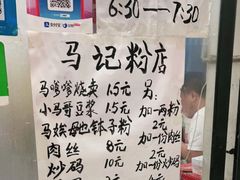 6:30—7:30
马记粉店
马嗲嗲烧卖 1.5元
小马哥豆浆 1.5元
马娭毑钵子粉
肉丝 8元
炒码 10元
另:
加一两粉
2元
加一份肉丝
2元
加一份炒码